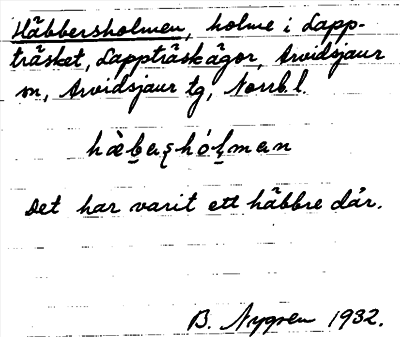 Häbbersholmen, holme i Lapp-
träsket, Lappträskägor, Arvidsjaur
sn, Arvidsjaur tg, Norrb.l.
Det har varit ett häbbre där.
B. Nygren 1932.